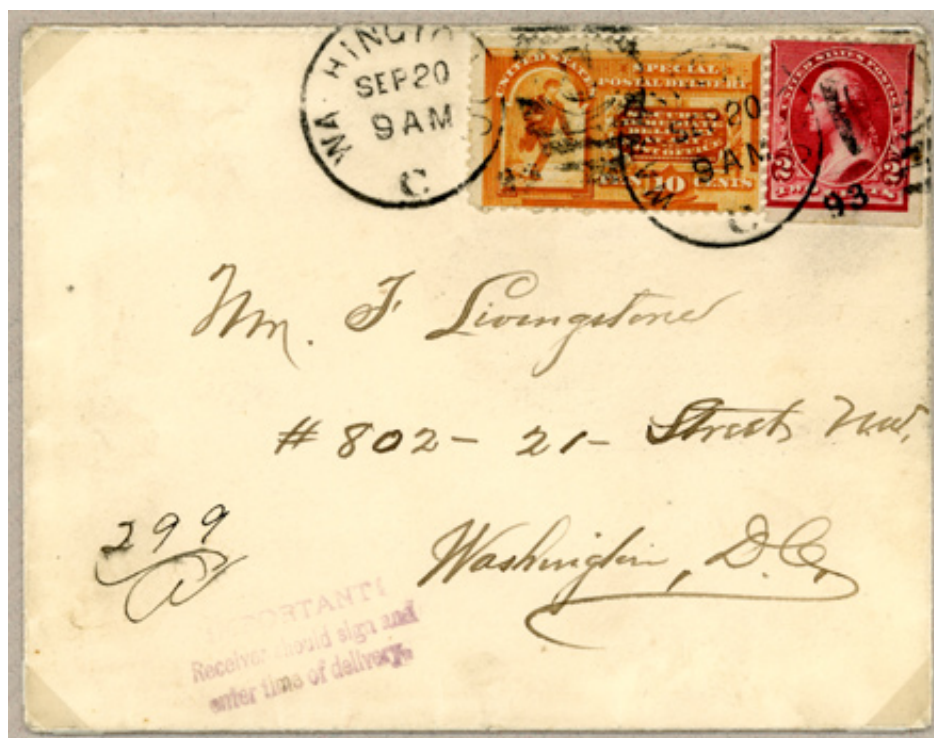 WASHINGTO
SEP 20
9 AM
C
UNITED STATES
SPECIAL
POSTAL DELIVERY
TEN 10 CENTS
SEP 20
9 AM
93
UNITED STATES POSTAGE
2 2
TWO CENTS
Mr. F Livingstone
# 802 - 21 - Street NW.
Washington, D.C.
299
IMPORTANT!
Receiver should sign and
enter time of delivery.